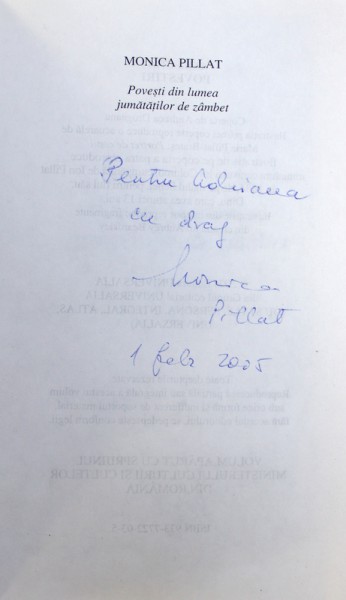 MONICA PILLAT
Povești din lumea
jumătăților de zâmbet
Pentru Adriana
cu drag
Monica
Pillat
1 febr 2005